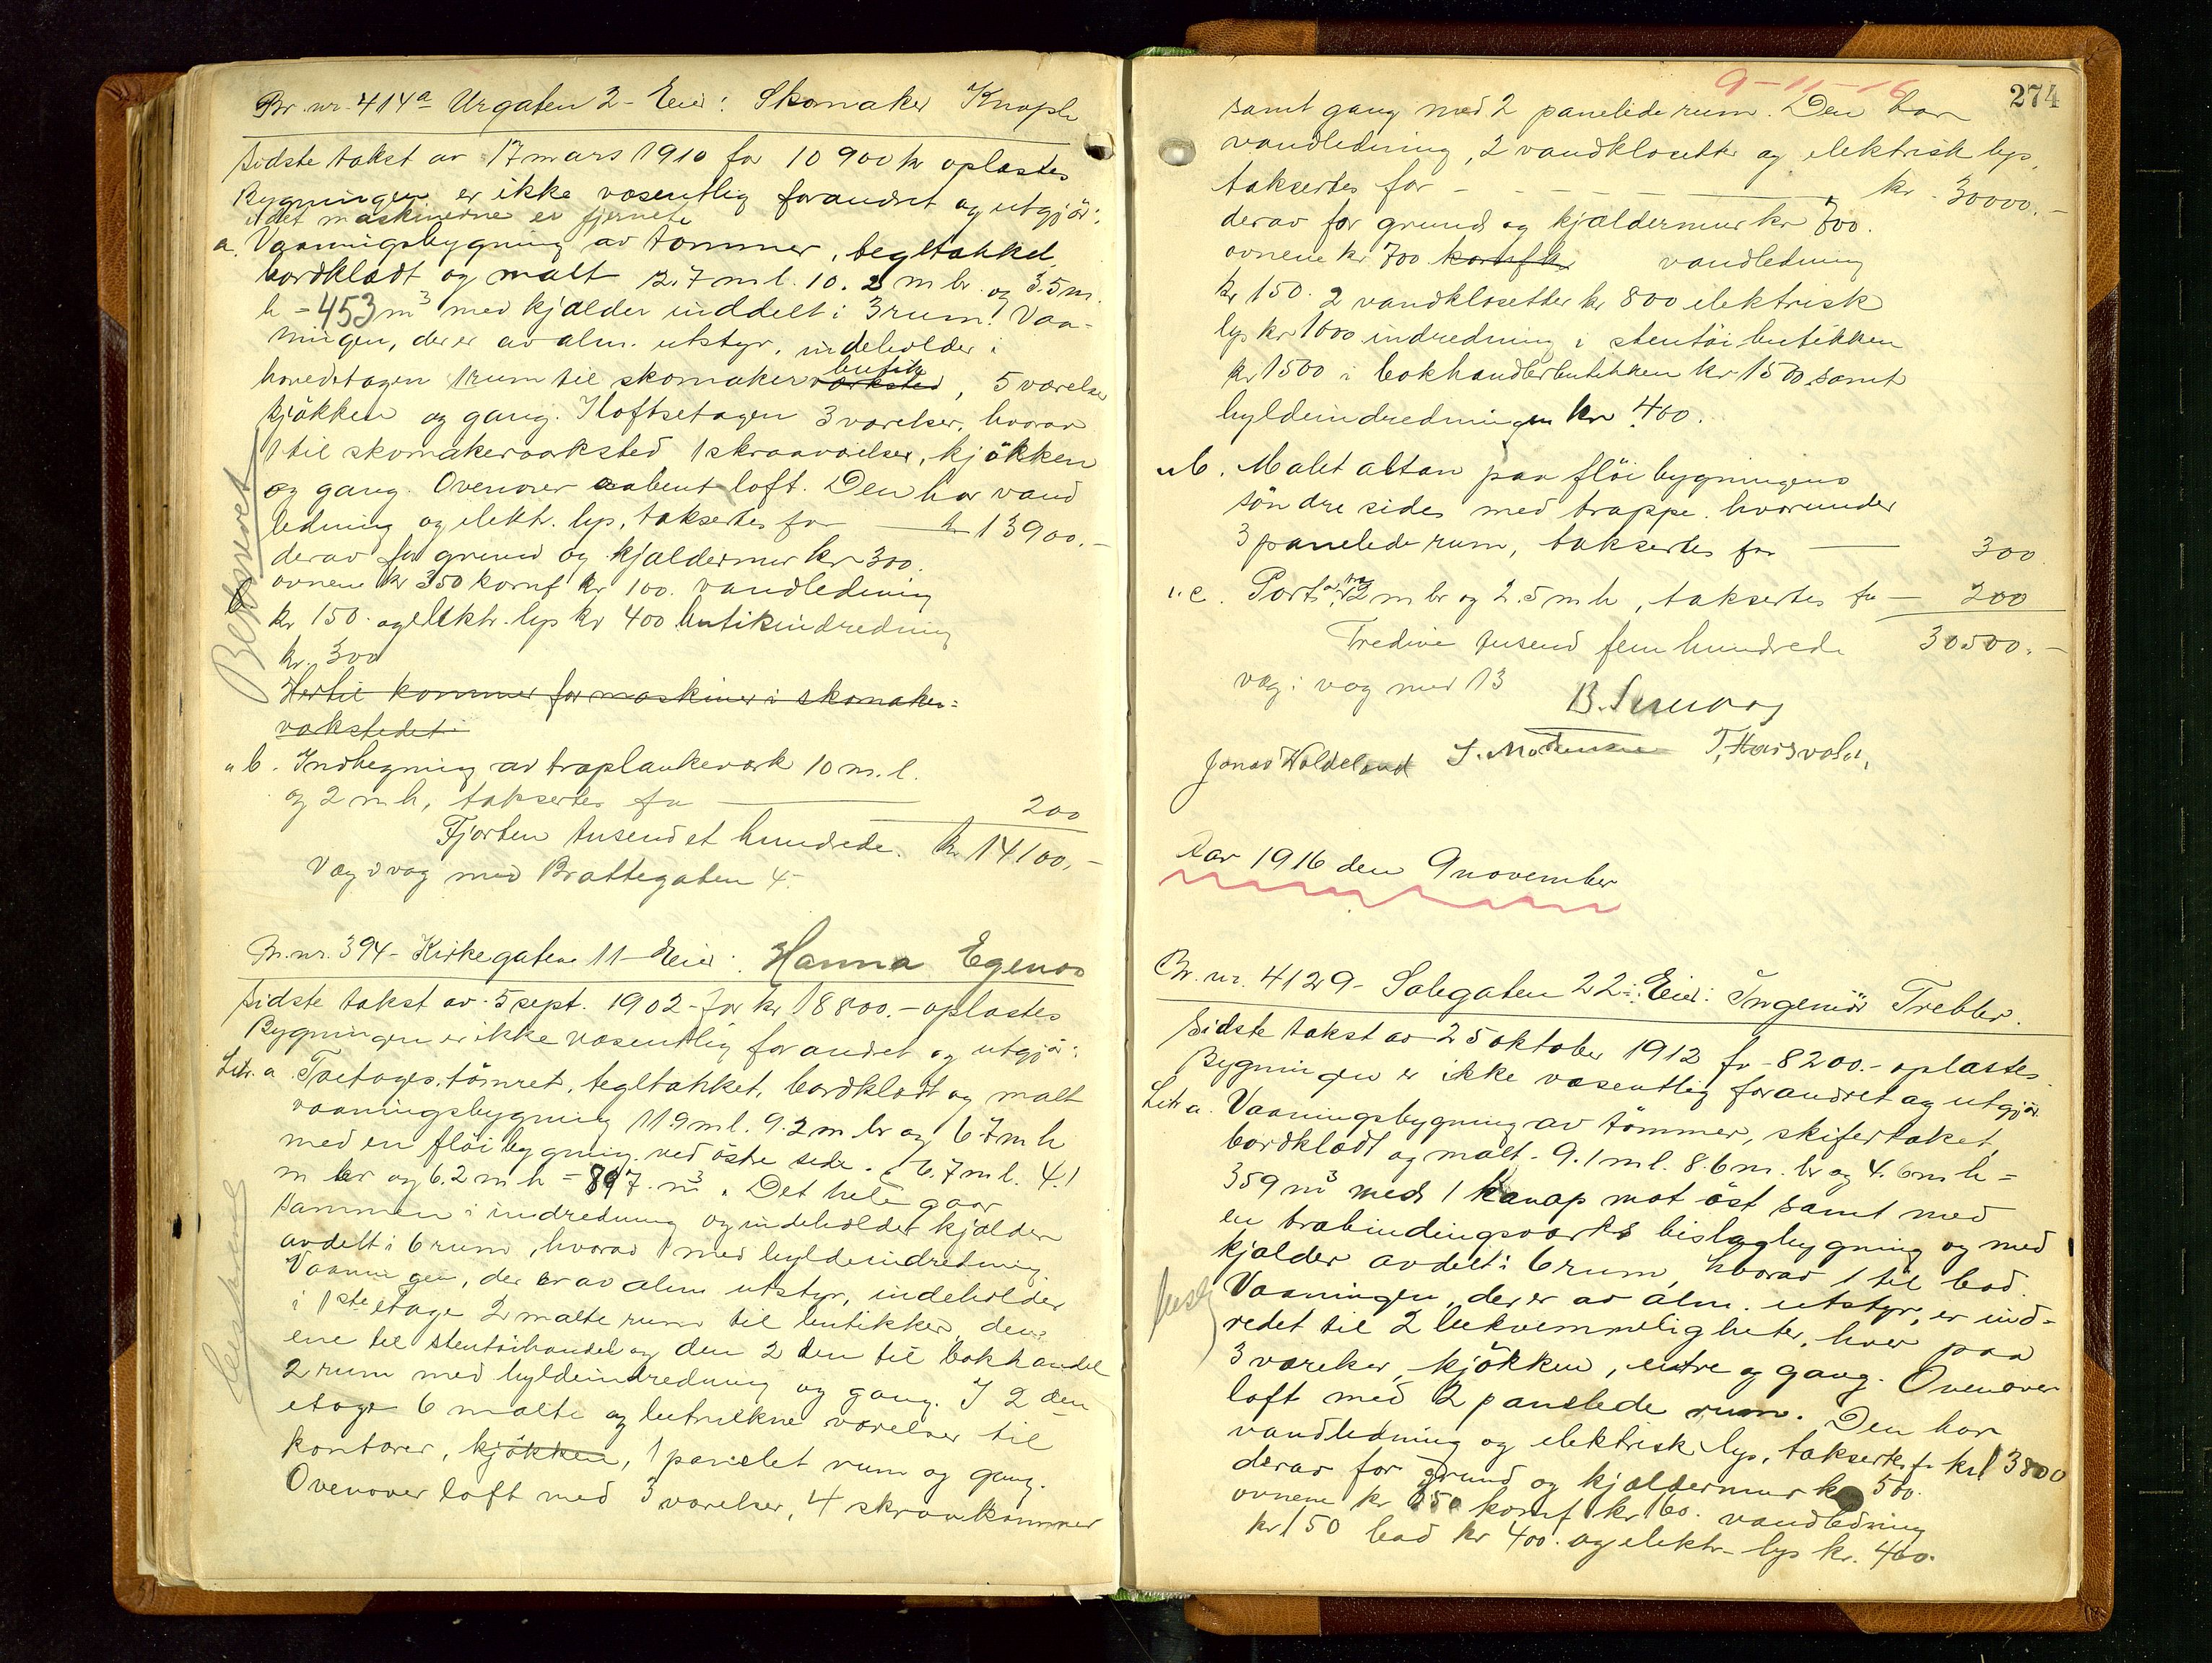 Br. nr. 414a Urgaten 2 - Eier: Skomaker Knoph
Sidste takst av 17 mars 1910 for 10 900 kr oplæstes
Bygningen er ikke væsentlig forandret og utgjör:
idet maskinerne er fjernete
a. Vaaningsbygning av tømmer, tegltækket
bordklædt og malt 12.7 m l. 10.2 m br. og 3.5 m.
h = 453 m3 med kjælder inddelt i 3 rum. Vaa-
ningen, der er av alm. utstyr, indeholder i
hovedetagen 1 rum til skomaker værksted butik, 5 værelser
kjökken og gang. I loftsetagen 3 værelser, hvorav
1 til skomakerværksted 1 skraaværelser, kjökken
og gang. Ovenover aabent loft. Den har vand
ledning og elektr. lys, taksertes for kr 13900.-
derav for grund og kjældermur kr 300.
ovnene kr 350 komf kr 100. vandledning
kr 150. og elektr. lys kr 400 butikindredning
kr. 300
Hertil kommer for maskiner i skomaker-
værkstedet:
Beskrevet
" b. Indhegning av træplankeværk 10 m. l.
og 2 m h, taksertes for 200
Fjorten tusend et hundrede. kr 14100.-
Væg i væg med Brattegaten 4.
Br. nr. 394 - Kirkegaten 11 - Eier: Hanna Egenæs
Sidste takst av 5 sept. 1902 - for kr 18800.- oplæstes
Bygningen er ikke væsentlig forandret og utgjör:
Litr. a Toetages, tömret, tegltækket, bordklædt og malt
vaaningsbygning 11.9 m l. 9.2 m br og 6.7 m h
med en flöibygning ved östre side. 6.7 m l. 4.1
m br og 6.2 m h = 897 m3. Det hele gaar
sammen i indredning og indeholder kjælder
avdelt i 6 rum, hvorav 1 med hyldeindredning
Vaaningen, der er av alm utstyr, indeholder
i 1ste etage 2 malte rum til butikker, den
ene til stentöihandel og den 2 den til bokhandel
2 rum med hyldeindredning og gang. I 2 den
etage 6 malte og betrukne værelser til
kontorer, kjökken, 1 panelet rum og gang.
Ovenover loft med 3 værelser, 4 skraakammer
9-11-16
274
samt gang med 2 panelede rum. Den har
vandledning, 2 vandklosetter og elektrisk lys,
taksertes for - - - - kr 30000.-
derav for grund og kjældermur kr 700.
ovnene kr 700 komf kr vandledning
kr 150. 2 vandklosetter kr 800 elektrisk
lys kr 1000 indredning i stentöibutikken
kr 1500 i bokhandlerbutikken kr 1500 samt
hyldeindredningen kr 400.
" b. Malet altan paa flöibygningens
söndre side med trappe. hvorunder
3 panelede rum, taksertes for 300
" c. Port av træ 2 m br og 2.5 m h, taksertes for - 200
Tredive tusend fem hundrede 30500.-
væg i væg med 13
Jonas Woldeland
Aar 1916 den 9 november
Br. nr. 4129 - Solegaten 22: Eier: Ingeniör Trebler.
Sidste takst av 25 oktober 1912 for - 8200.- oplæstes.
Bygningen er ikke væsentlig forandret og utgjör
Litr a. Vaaningsbygning av tömmer, skifertæket,
bordklædt og malt. 9.1 m l. 8.6 m. br og 4.6 m h =
359 m3 med 1 karnap mot öst samt med
en træbindingsværks bislagbygning og med
kjælder avdelt i 6 rum, hvorav 1 til bad.
Vaaningen, der er av alm. utstyr, er ind-
redet til 2 bekvemmeligheter, hver paa
3 værelser, kjökken, entre og gang. Ovenover
loft med 2 panelede rum. Den har
vandledning og elektrisk lys, taksertes for kr 13800
derav for grund og kjældermur kr 500.
ovnene kr 250 komf kr 160. vandledning
kr 150 bad kr 400. og elektr. lys kr. 400.